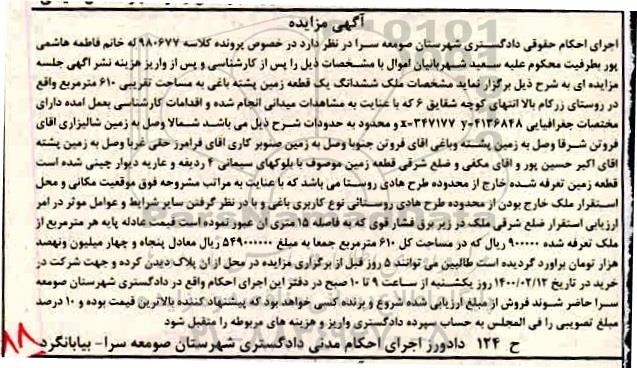 آگهی مزایده
اجرای احکام حقوقی دادگستری شهرستان صومعه سرا در نظر دارد در خصوص پرونده کلاسه ۹۸۰۶۷۷ له خانم فاطمه هاشمی
پور بطرفیت محکوم علیه سعید شهربانیان اموال با مشخصات ذیل را پس از کارشناسی و پس از واریز هزینه نشر آگهی جلسه
مزایده ای به شرح ذیل برگزار نماید مشخصات ملک ششدانگ یک قطعه زمین پشته باغی به مساحت تقریبی ۶۱۰ مترمربع واقع
در روستای زرکام بالا انتهای کوچه شقایق ۶ که با عنایت به مشاهدات میدانی انجام شده و اقدامات کارشناسی بعمل امده دارای
مختصات جغرافیایی x=۳۴۷۱۷۷ y=۴۱۳۶۸۴۸ و محدود به حدودات شرح ذیل می باشد شمالا وصل به زمین شالیزاری اقای
فروتن شرقا وصل به زمین پشته وباغی اقای فروتن جنوبا وصل به زمین صنوبر کاری اقای فرامرز حقی غربا وصل به زمین پشته
اقای اکبر حسین پور و اقای مکفی و ضلع شرقی قطعه زمین موصوف با بلوکهای سیمانی ۴ ردیفه و عاریه دیوار چینی شده است
قطعه زمین تعرفه شده خارج از محدوده طرح هادی روستا می باشد که با عنایت به مراتب مشروحه فوق موقعیت مکانی و محل
استقرار ملک خارج بودن از محدوده طرح هادی روستائی نوع کاربری باغی و با در نظر گرفتن سایر شرایط و عوامل موثر در امر
ارزیابی استقرار ضلع شرقی ملک در زیر برق فشار قوی که به فاصله ۱۵ متری ان عبور نموده است قیمت عادله پایه هر مترمربع از
ملک تعرفه شده ۹۰۰۰۰۰ ریال که در مساحت کل ۶۱۰ مترمربع جمعا به مبلغ ۵۴۹۰۰۰۰۰۰ ریال معادل پنجاه و چهار میلیون ونهصد
هزار تومان براورد گردیده است طالبین می توانند ۵ روز قبل از برگزاری مزایده در محل از ان پلاک دیدن کرده و جهت شرکت در
خرید در تاریخ ۱۴۰۰/۰۲/۱۲ روز یکشنبه از ساعت ۹ تا ۱۰ صبح در دفتر این اجرای احکام واقع در دادگستری شهرستان صومعه
سرا حاضر شوند فروش از مبلغ ارزیابی شده شروع و برنده کسی خواهد بود که پیشنهاد کننده بالاترین قیمت بوده و ۱۰ درصد
مبلغ تصویبی را فی المجلس به حساب سپرده دادگستری واریز و هزینه های مربوطه را متقبل شود
ح ۱۲۴ دادورز اجرای احکام مدنی دادگستری شهرستان صومعه سرا- بیابانگرد